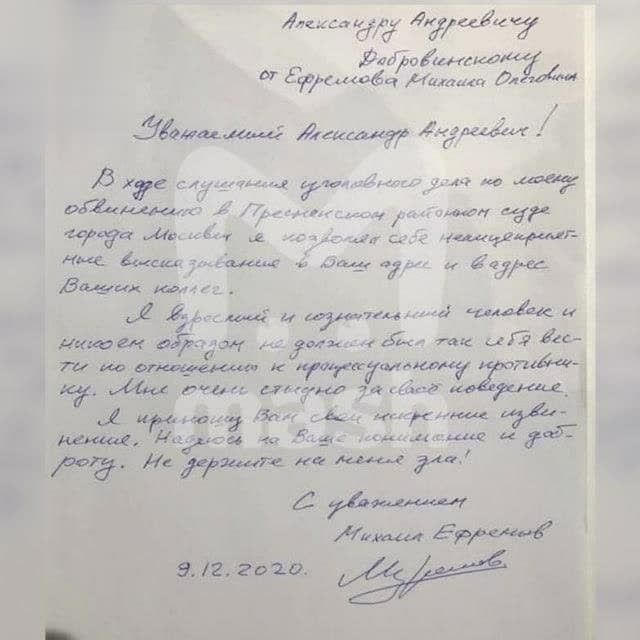 Александру Андреевичу
Добровинскому
от Ефремова Михаила Олеговича
Уважаемый Александр Андреевич!
В ходе слушания уголовного дела по моему
обвинению в Пресненском районном суде
города Москвы я позволял себе нелицеприят-
ные высказывание в Ваш адрес и в адрес
Ваших коллег.
Я взрослый и сознательный человек и
никоем образом не должен был так себя вес-
ти по отношению к процессуальному противни-
ку. Мне очень стыдно за своё поведение.
Я приношу Вам свои искренние изви-
нение. Надеюсь на Ваше понимание и доб-
роту. Не держите на меня зла!
С уважением
Михаил Ефремов
9.12.2020.
mash